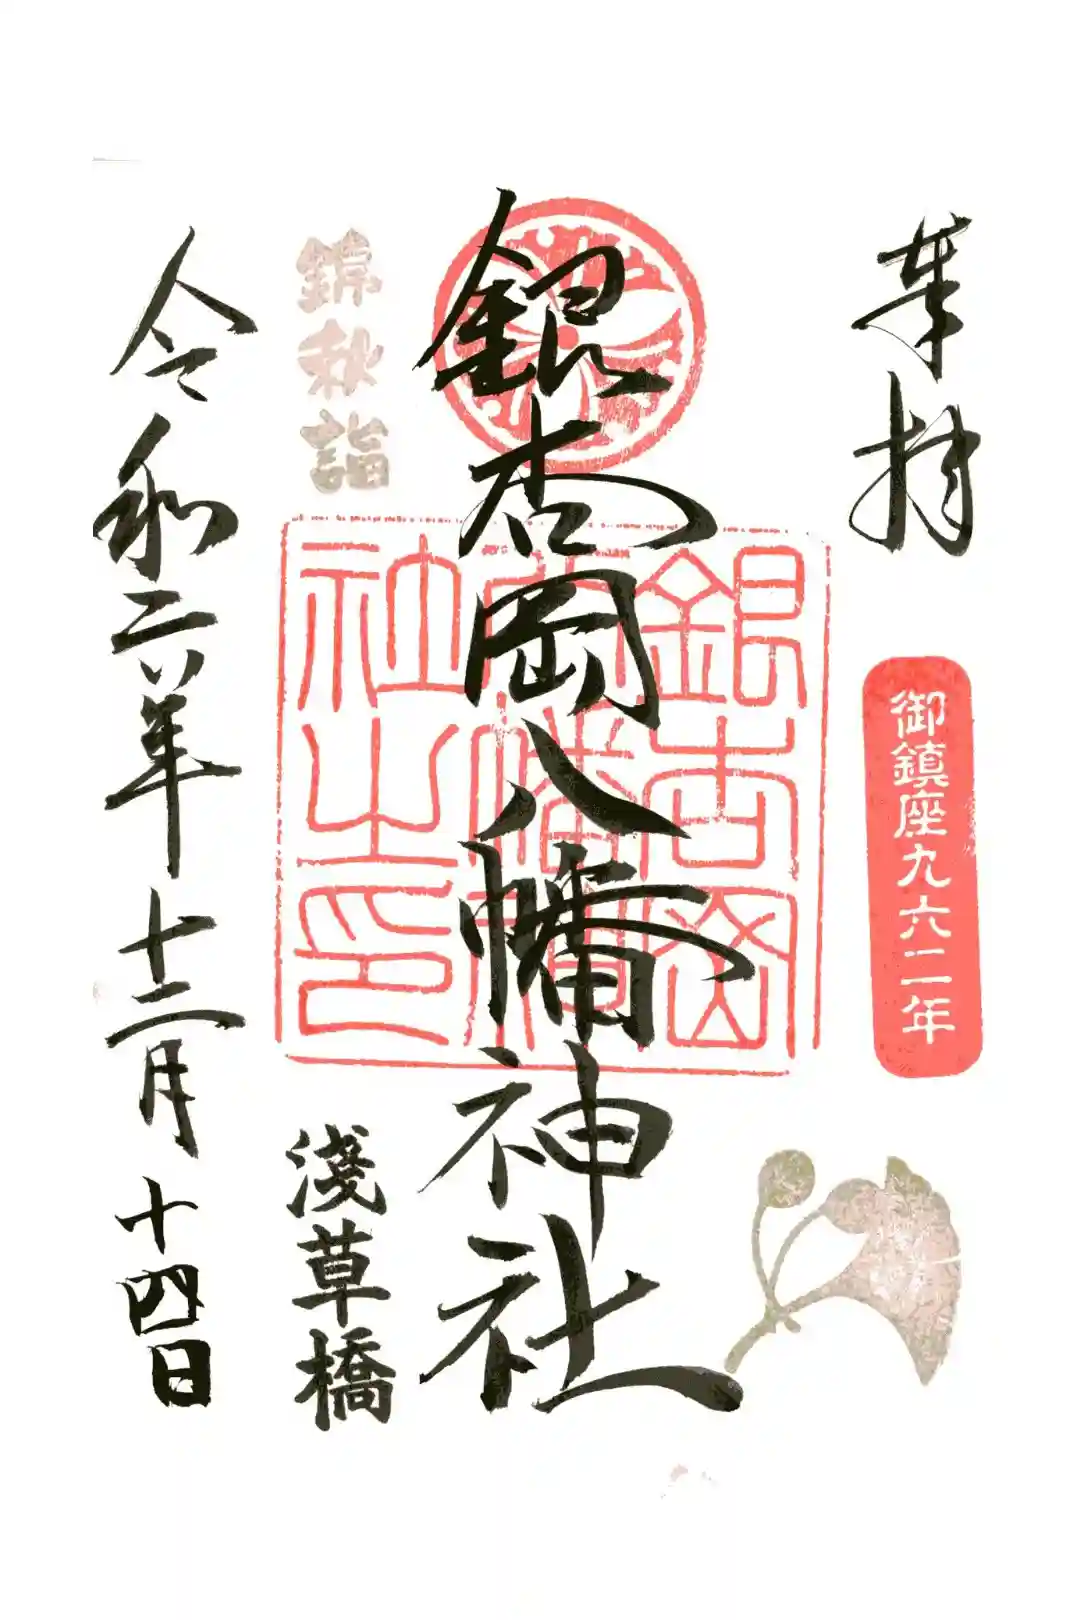 奉拝
御鎮座九六二年
銀杏岡八幡神社
銀杏岡
八幡神
社之印
錦秋詣
淺草橋
令和六年十二月十四日